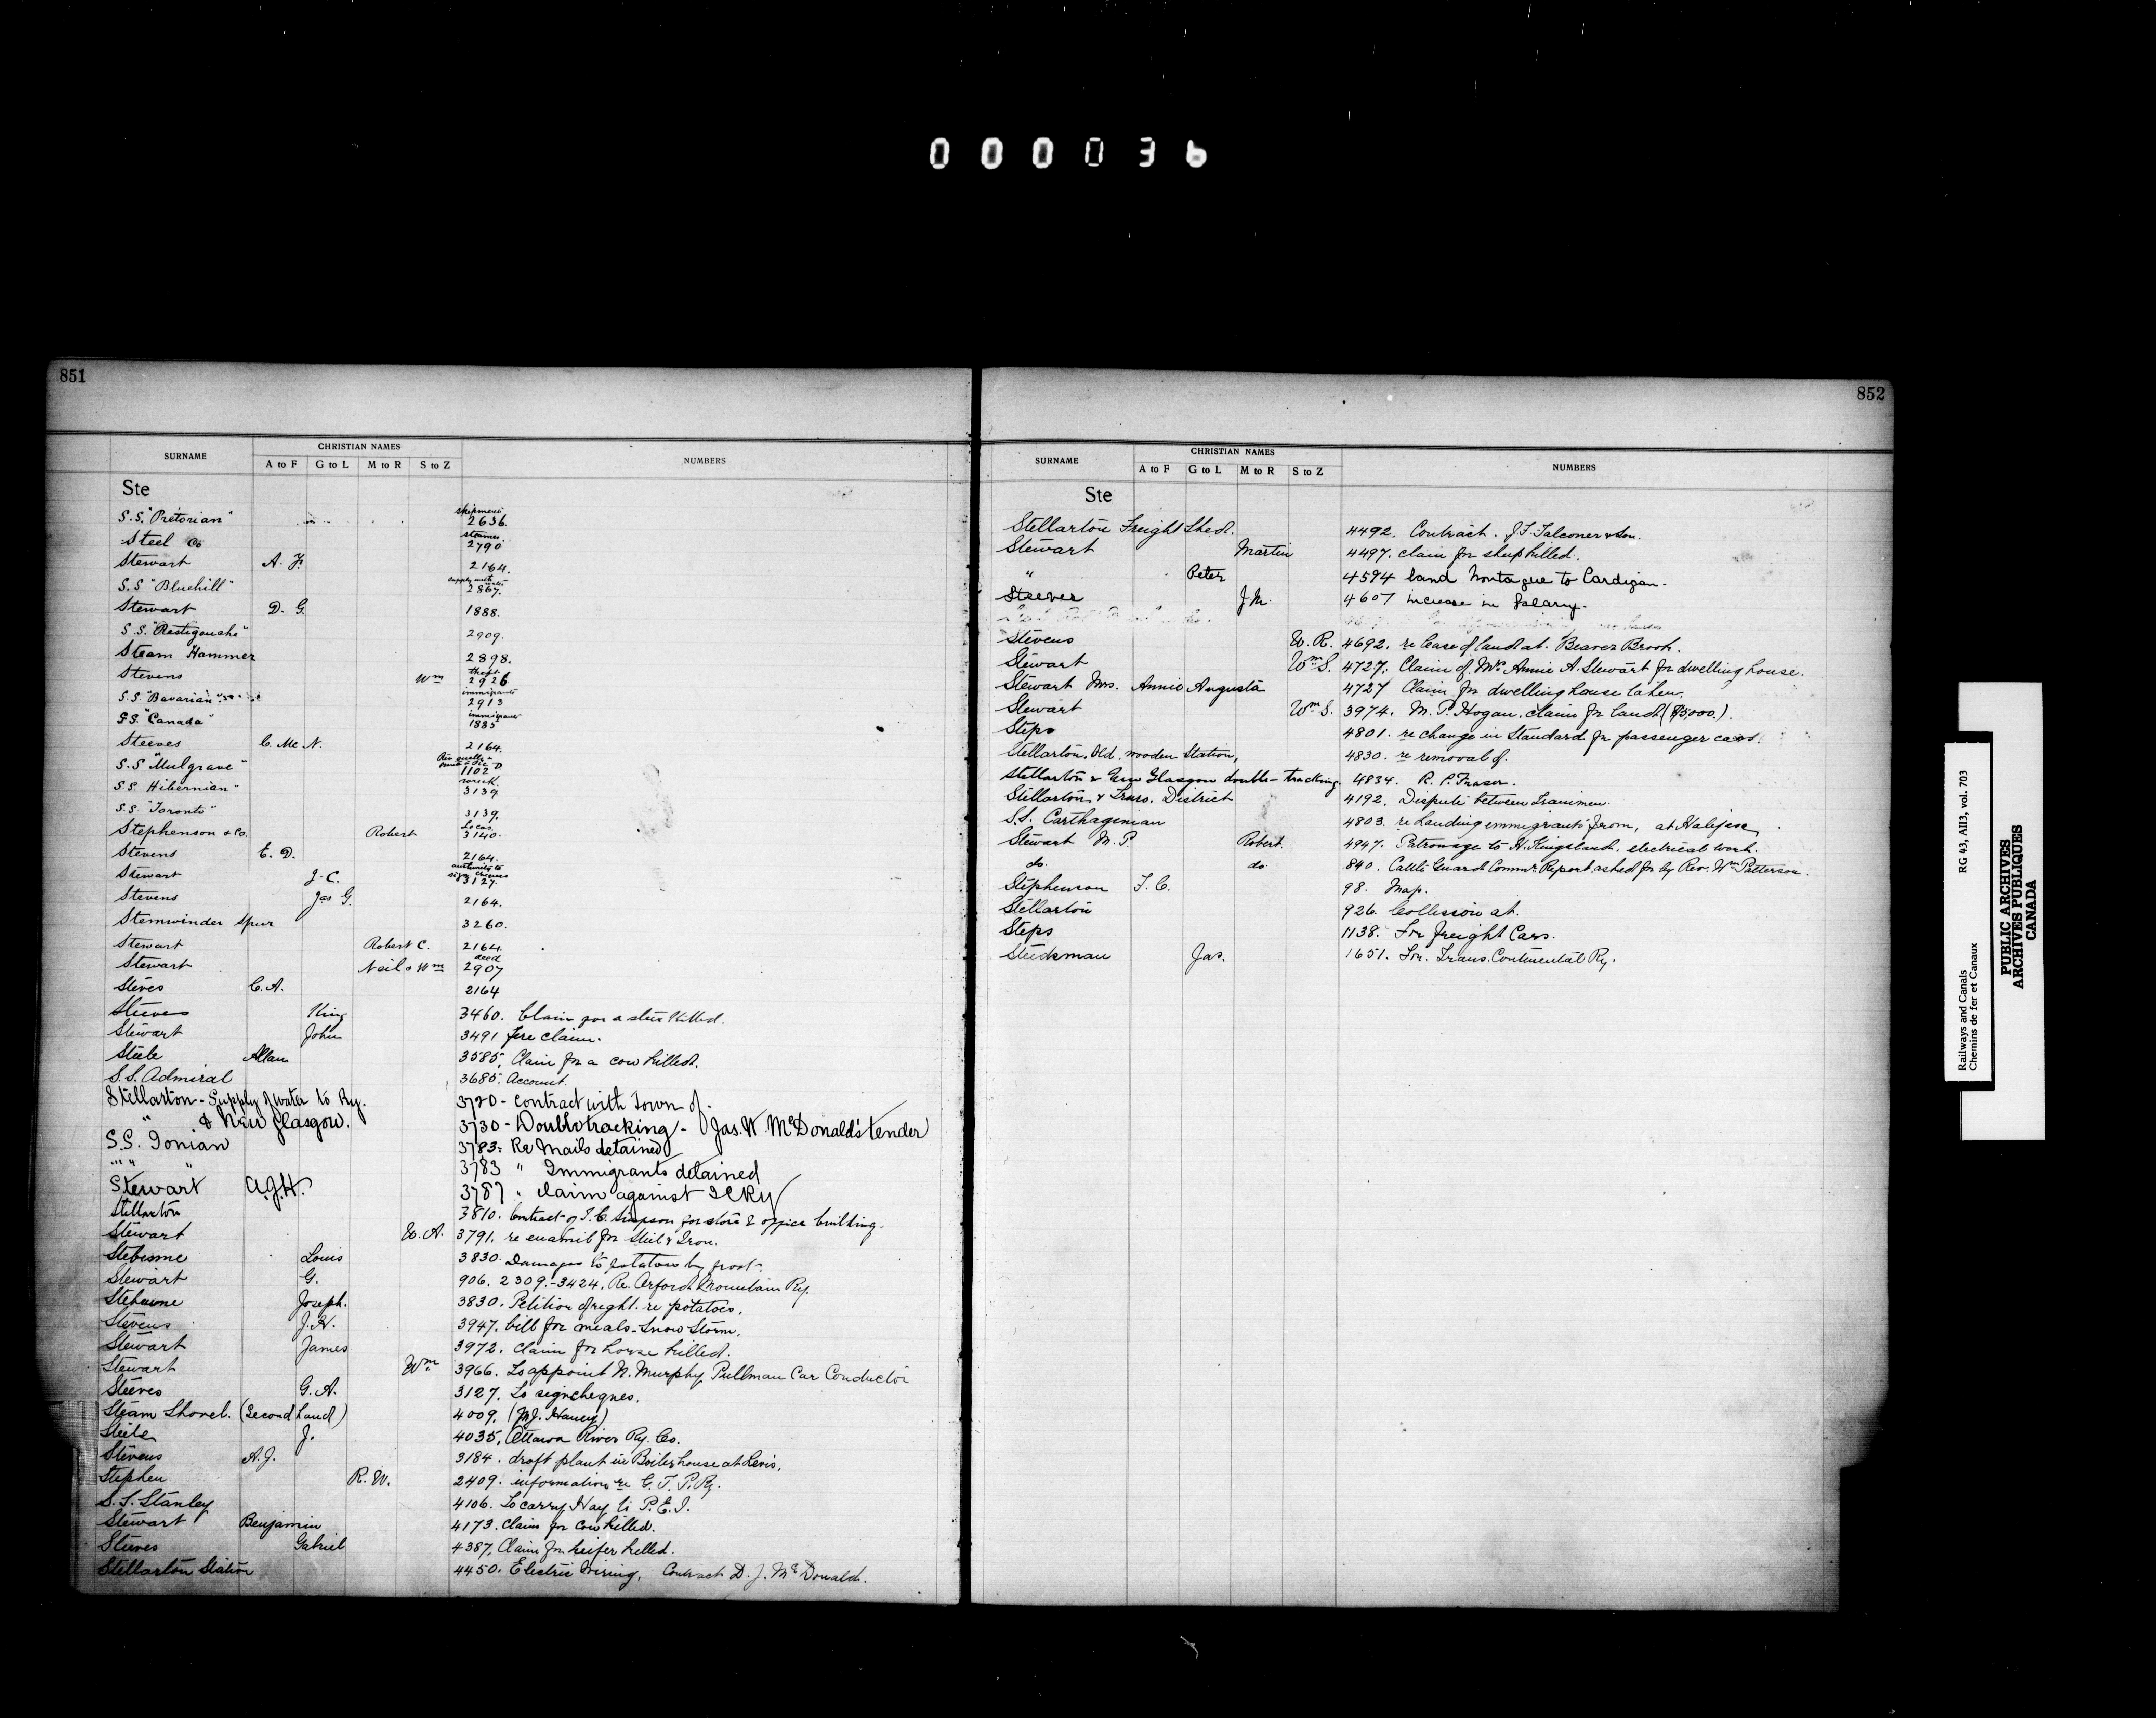 000036
851
SURNAME CHRISTIAN NAMES NUMBERS
A to F G to L M to R S to Z
Ste
S.S. "Pretorian" shipment 2636.
Steel Co 2790
Stewart A. F. 2164.
S.S "Bluehill" supply with water 2867.
Stewart D. G. 1888.
S.S. "Restigouche" 2909.
Steam Hammer 2898.
Stevens Wm theft 2926
S.S "Bavarian" immigrants 2913
S.S. "Canada" immigrants 1885
Steeves C. Mc N. 2164.
S.S "Mulgrave" 1102
S.S. Hibernian" wreck 3139
S.S "Toronto" 3139.
Stephenson & Co. Robert Locos 3140.
Stevens E. D. 2164.
Stewart J. C. authority to sign cheques 3127.
Stevens Jas G. 2164.
Stemwinder Spur 3260.
Stewart Robert C. 2164.
Stewart Neil & Wm deed 2907
Steves C. A. 2164
Steeves King 3460. Claim for a steer killed.
Stewart John 3491 fire claim.
Steele Allan 3585, Claim for a cow killed.
S.S. Admiral 3685. Account.
Stellarton - Supply of water to Ry. 3720 - Contract with Town of
" & New Glasgow. 3730 - Doubletracking - Jas. W. McDonald's tender
S.S. Ionian 3783: Re Mails detained
" " " 3783 " Immigrants detained
Stewart A.J.H. 3787. claim against ICRy
Stellarton 3810. Contract of T. C. Simpson for store & office building.
Stewart W. A. 3791. re enamel for Steel & Iron.
Stebenne Louis 3830. Damages to potatoes by frost.
Stewart G. 906. 2309.-3424. Re. Orford Mountain Ry.
Stebenne Joseph. 3830. Petition of right. re potatoes.
Stevens J. H. 3947. bill for meals - Snow Storm.
Stewart James 3972. Claim for horse killed.
Stewart Wm 3966. To appoint N. Murphy Pullman Car Conductor
Steeves G. A. 3127. To sign cheques.
Steam Shovel. (Second hand) 4009. (M.J. Haney)
Steele J. 4035, Ottawa River Ry. Co.
Stevens A. J. 3184. draft plant in Boilerhouse at Levis.
Stephen R. W. 2409. information re G. T. P. Ry.
S. S. Stanley 4106. To carry Hay to P. E. I.
Stewart Benjamin 4173. Claim for cow killed.
Steeves Gabriel 4387, Claim for heifer killed.
Stellarton Station 4450. Electric Wiring, Contract D. J. McDonald.
852
SURNAME CHRISTIAN NAMES NUMBERS
A to F G to L M to R S to Z
Ste
Stellarton Freight Shed. 4492. Contract. J. F. Falconer & Son.
Stewart Martin 4497. claim for sheep killed.
" Peter 4594 land Montague to Cardigan.
Steeves J. M. 4607 increase in Salary.
Stevens W. R. 4692. re lease of land at. Beaver Brook.
Stewart Wm S. 4727. Claim of Mrs. Annie A. Stewart for dwelling house.
Stewart Mrs. Annie Augusta 4727 Claim for dwelling house taken.
Stewart Wm S. 3974. M. P. Hogan. claim for land ($5,000.)
Steps 4801. re change in Standard for passenger cars.
Stellarton. Old wooden Station, 4830. re removal of.
Stellarton & New Glasgow double-tracking. 4834. R. P. Fraser.
Stellarton & Truro. District 4192. Dispute between Trainmen.
S.S. Carthagenian 4803. re Landing immigrants from, at Halifax
Stewart M. P. Robert 4947. Patronage to H. Kingsland. electrical work.
do. do 840. Cattle Guard Commn. Report asked for by Rev. Wm Patterson.
Stephenson F. C. 98. Map.
Stellarton 926. Collision at.
Steps 1138. For freight Cars.
Steedsman Jas. 1651. For. Trans. Continental Ry.
Railways and Canals RG 43, AII3, vol. 703
Chemins de fer et Canaux
PUBLIC ARCHIVES
ARCHIVES PUBLIQUES
CANADA